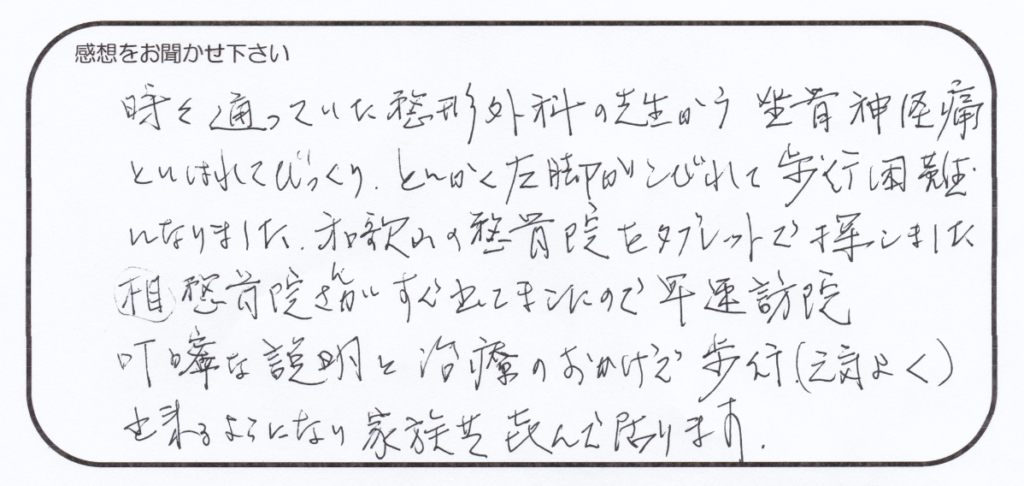 感想をお聞かせ下さい
時々通っていた整形外科の先生から坐骨神経痛
といはれてびっくり、とんかく左脚がしびれして歩行困難
になりました。和歌山の整骨院をタブレットで探しました
相整骨院さんがすぐ出てきましたので早速訪院
叮嚀な説明と治療のおかげで歩行(元気よく)
出来るようになり家族共喜んで居ります。